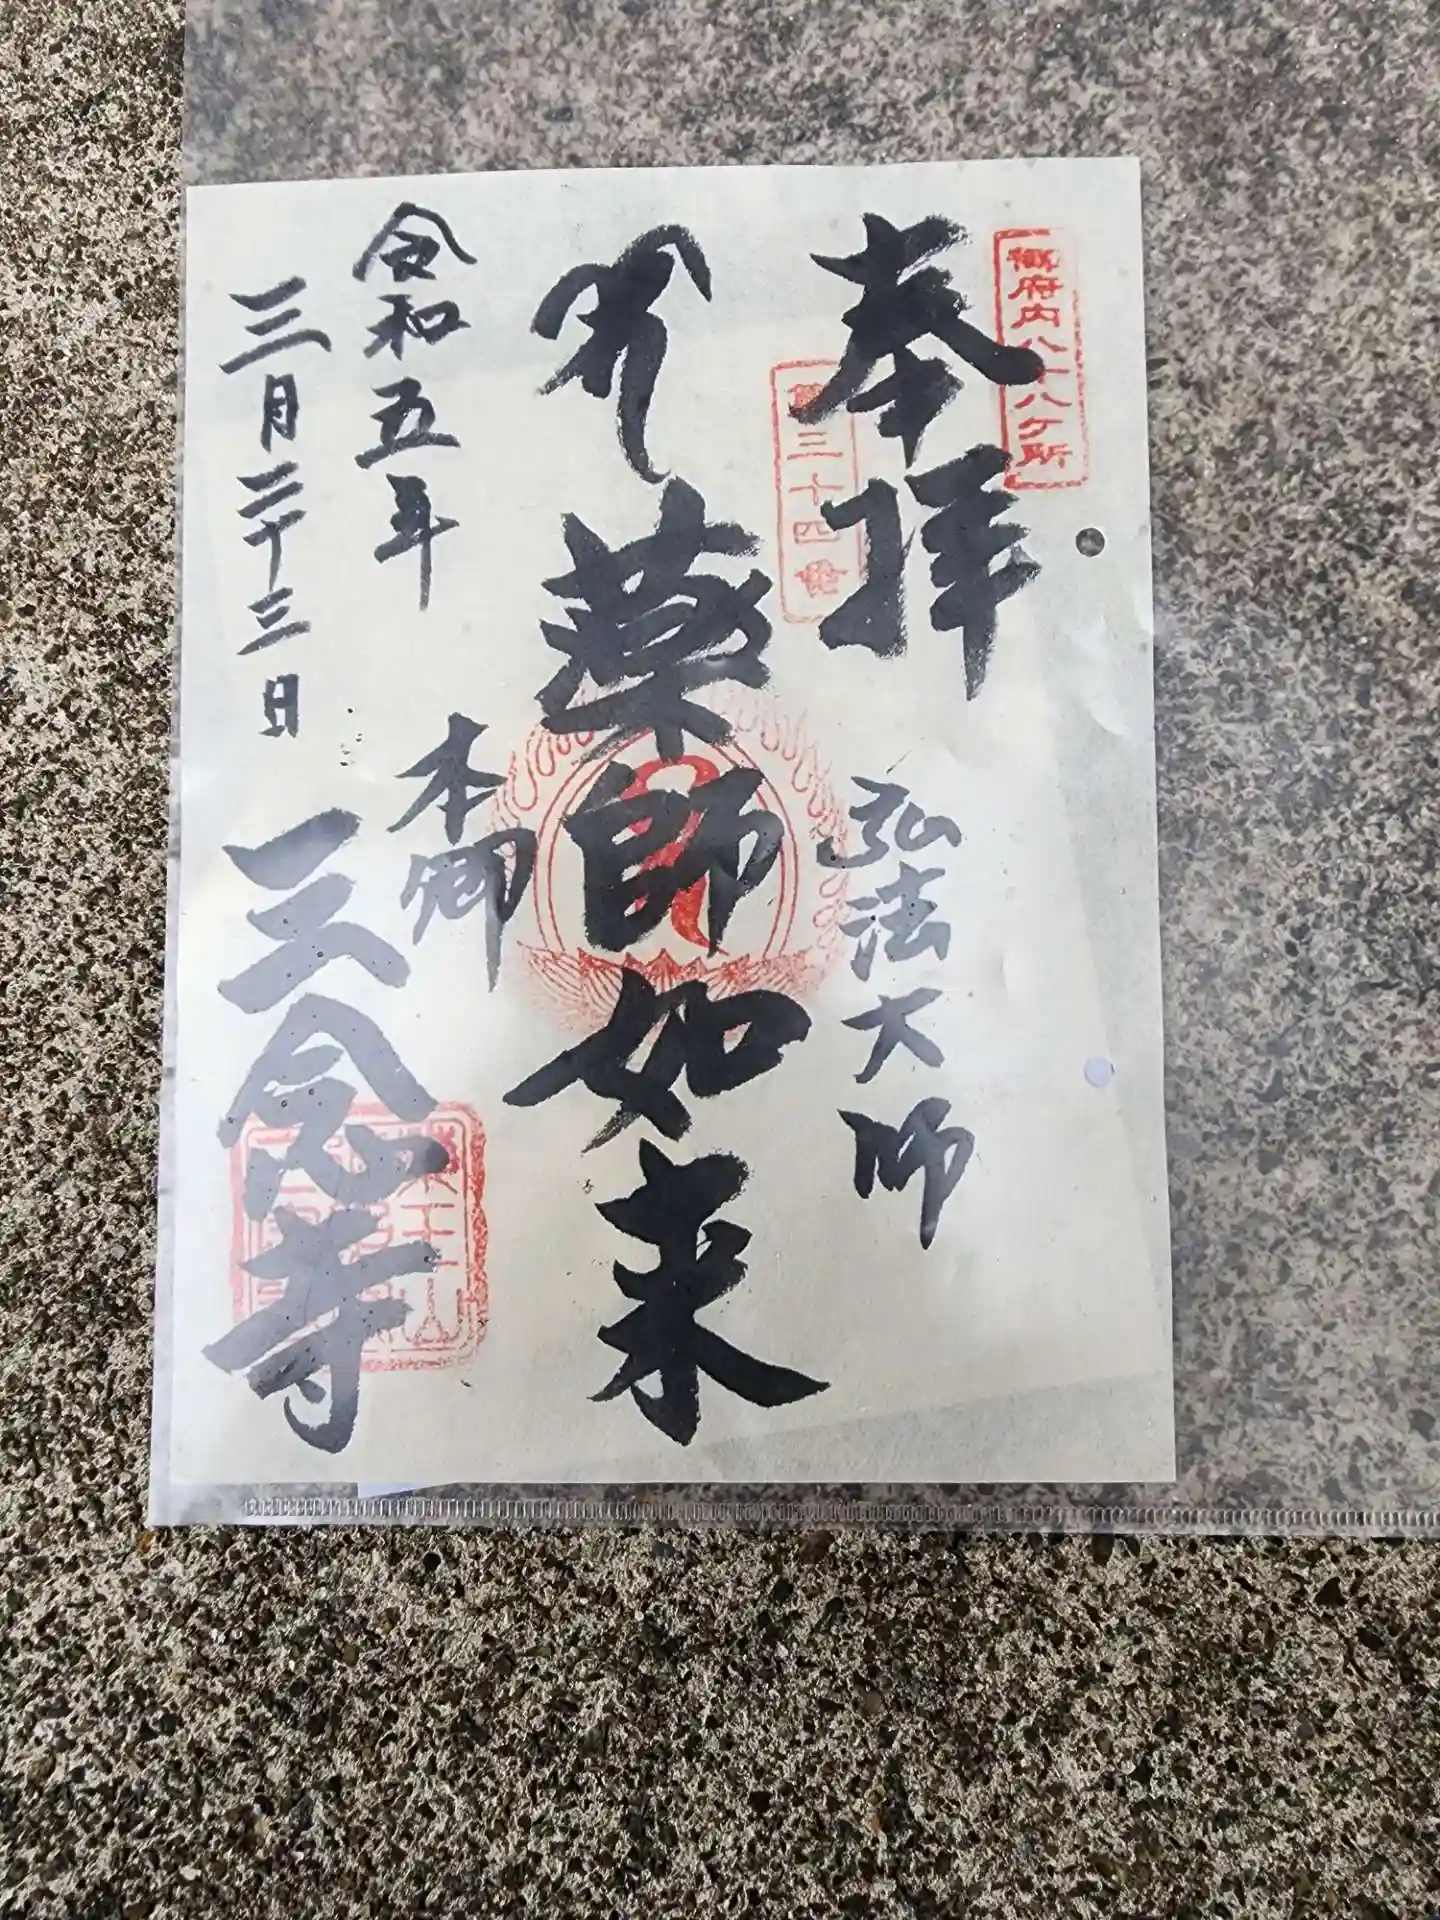 御府内八十八ケ所
奉拝
第三十四番
弘法大師
薬師如来
本郷
令和五年
三月二十三日
三念寺